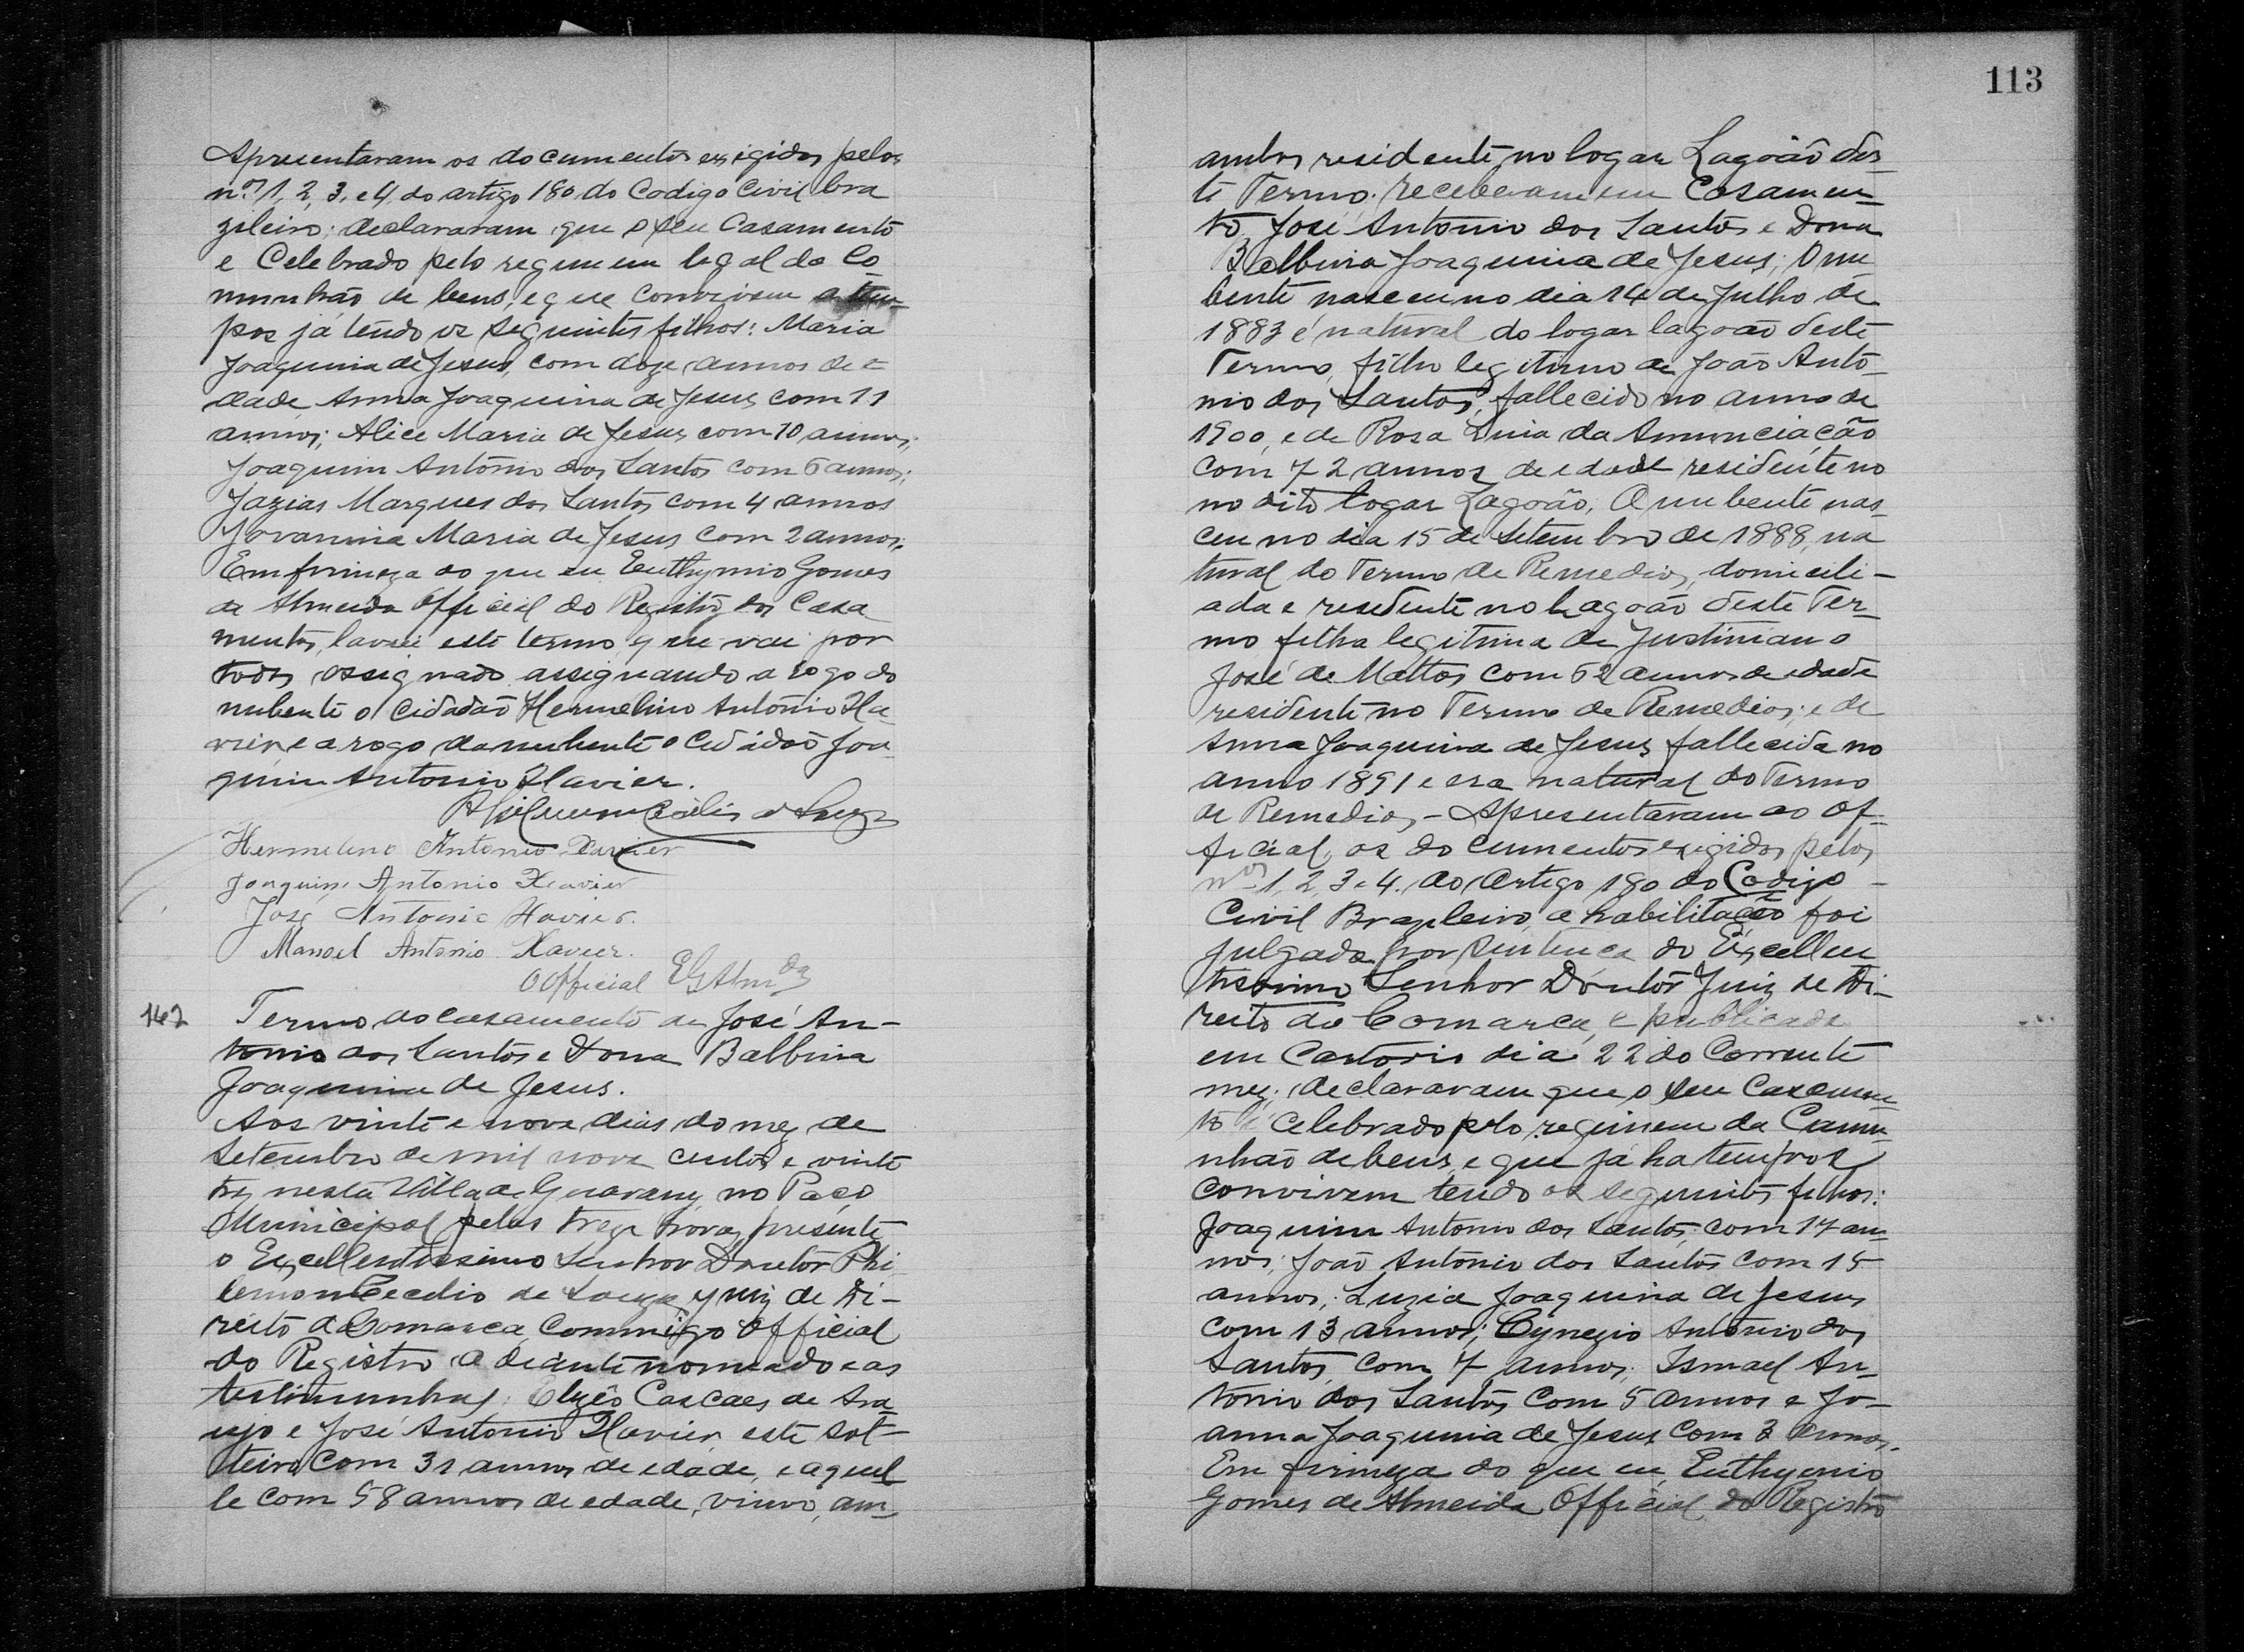 Apresentaram os documentos exigidos pelos
nos. 1, 2, 3, e 4, do artigo 180 do Codigo Civil bra
zileiro; declararam que o seu Casamento
e Celebrado pelo regimem legal da Co
munhão de bens, e que convivem a tem-
pos já tendo os seguintes filhos: Maria
Joaquina de Jesus, com doze annos de e
dade, Anna Joaquina de Jesus com 11
annos; Alice Maria de Jesus com 10 annos;
Joaquim Antonio dos Santos com 6 annos;
Jazias Marques dos Santos com 4 annos
Jovanina Maria de Jesus com 2 annos.
Em firmeza do que eu Euthymio Gomes
de Almeida Official do Registro dos Casa
mentos, lavrei este termo que vai por
todos assignado assignando a rogo do
nubente o Cidadão Hermelino Antonio Xa
vier, e a rogo da nubente o Cidadão Joa
quim Antonio Xavier.
Hermelino Antonio Xavier
Joaquim Antonio Xavier
José Antonio Xavier.
Manoel Antonio Xavier.
O Official EGAlmda
142 Termo do casamento de José An-
tonio dos Santos e Dona Balbina
Joaquina de Jesus.
Aos vinte e nove dias do mez de
Setembro de mil nove centos e vinte
trez nesta Villa de Guarany, no Paço
Municipal pelas treze horas, presente
o Excellentissimo Senhor Doutor Phi
lemon Cecilio de Souza Juiz de Di-
reito da Comarca, Commigo Official
do Registro a deante nomeado e as
testimunhas: Elyzêo Cascaes de Ara
ujo e José Antonio Xavier, este sol-
teiro Com 31 annos de edade, e aquel
le com 58 annos de edade, viuvo, am-
113
ambos residente no logar Lagoão des
te Termo: receberam em Casamen-
to, José Antonio dos Santos e Dona
Balbina Joaquina de Jesus; O nu
bente nasceu no dia 14 de Julho de
1883 é natural do logar lagoão deste
Termo, filho legitimo de João Anto-
nio dos Santos, fallecido no anno de
1900, e de Rosa Luia da Annunciação
com 72 annos de edade residente no
no dito logar Lagoão, A nubente nas
ceu no dia 15 de Setembro de 1888, na
tural do Termo de Remedios, domicili-
ada e residente no Lagoão deste Ter-
mo filha legitima de Justiniano
José de Mattos com 62 annos de edade
residente no Termo de Remedios; e de
Anna Joaquina de Jesus fallecida no
anno 1891 e era natural do Termo
de Remedios - Apresentaram ao Of-
ficial, os documentos exigidos pelos
nos 1, 2, 3 e 4. do Artigo 180 do Codigo -
Civil Brazileiro, a habilitação foi
julgada por sentença do Excellen
tissimo Senhor Doutor Juiz de Di-
reito da Comarca, e publicada
em Cartorio dia 22 do Corrente
mez; declararam que o seu Casamen
to é Celebrado pelo regimem da Commu
nhão de bens, e que já ha tempos
convivem tendo os seguintes filhos:
Joaquim Antonio dos Santos, com 17 an
nos; João Antonio dos Santos com 15
annos; Luzia Joaquina de Jesus
Com 13 annos; Cynezio Antonio dos
Santos, com 7 annos; Ismael An-
tonio dos Santos Com 5 annos e Jo-
anna Joaquina de Jesus Com 3 annos.
Em firmeza do que eu, Euthymio
Gomes de Almeida, Official do Registro